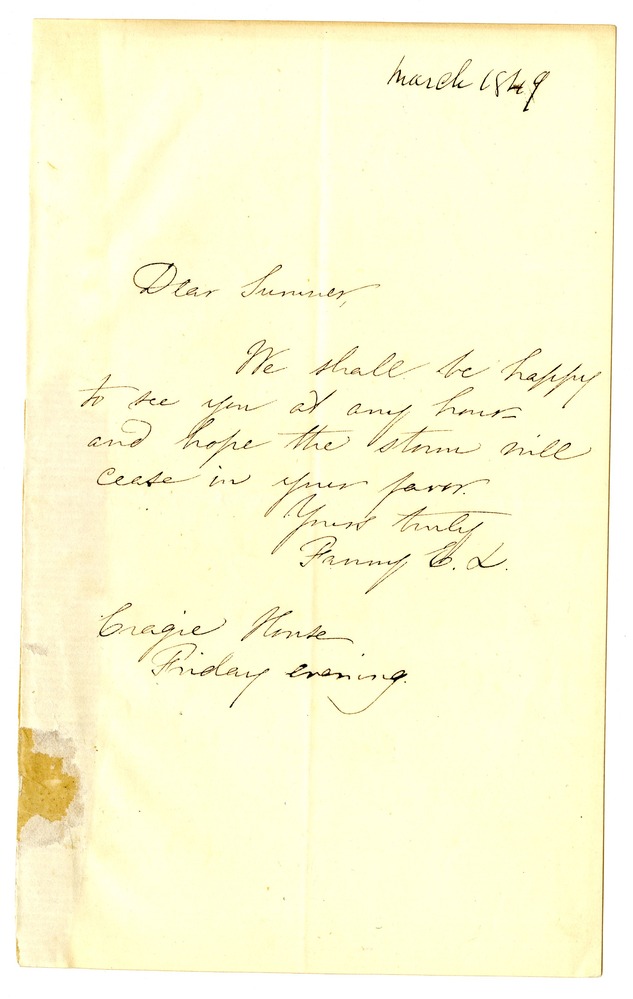 March 1849
Dear Sumner,
We shall be happy
to see you at any hour
and hope the storm will
cease in your favor.
Yours truly
Fanny E. L.
Cragie House
Friday evening.